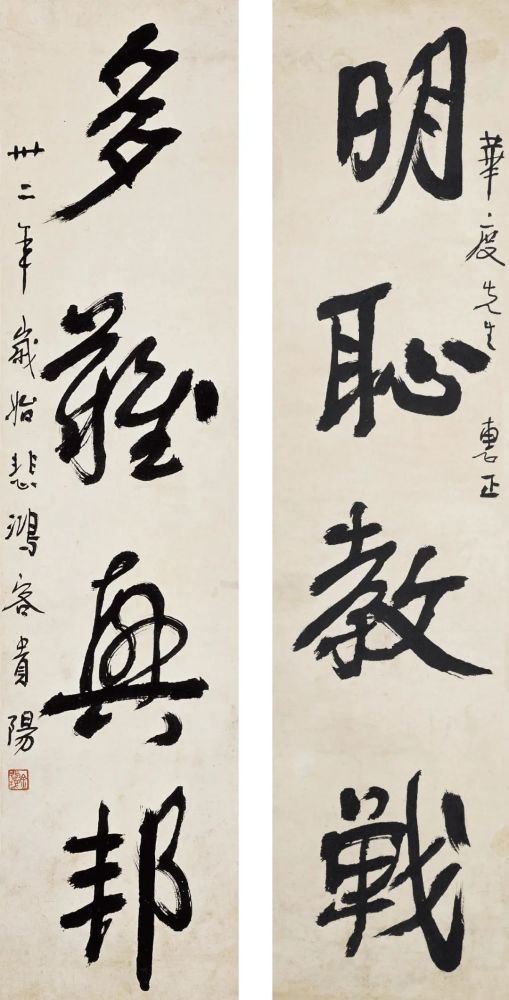 華度先生 惠正
明恥教戰
多難興邦
卅二年歲始悲鴻客貴陽